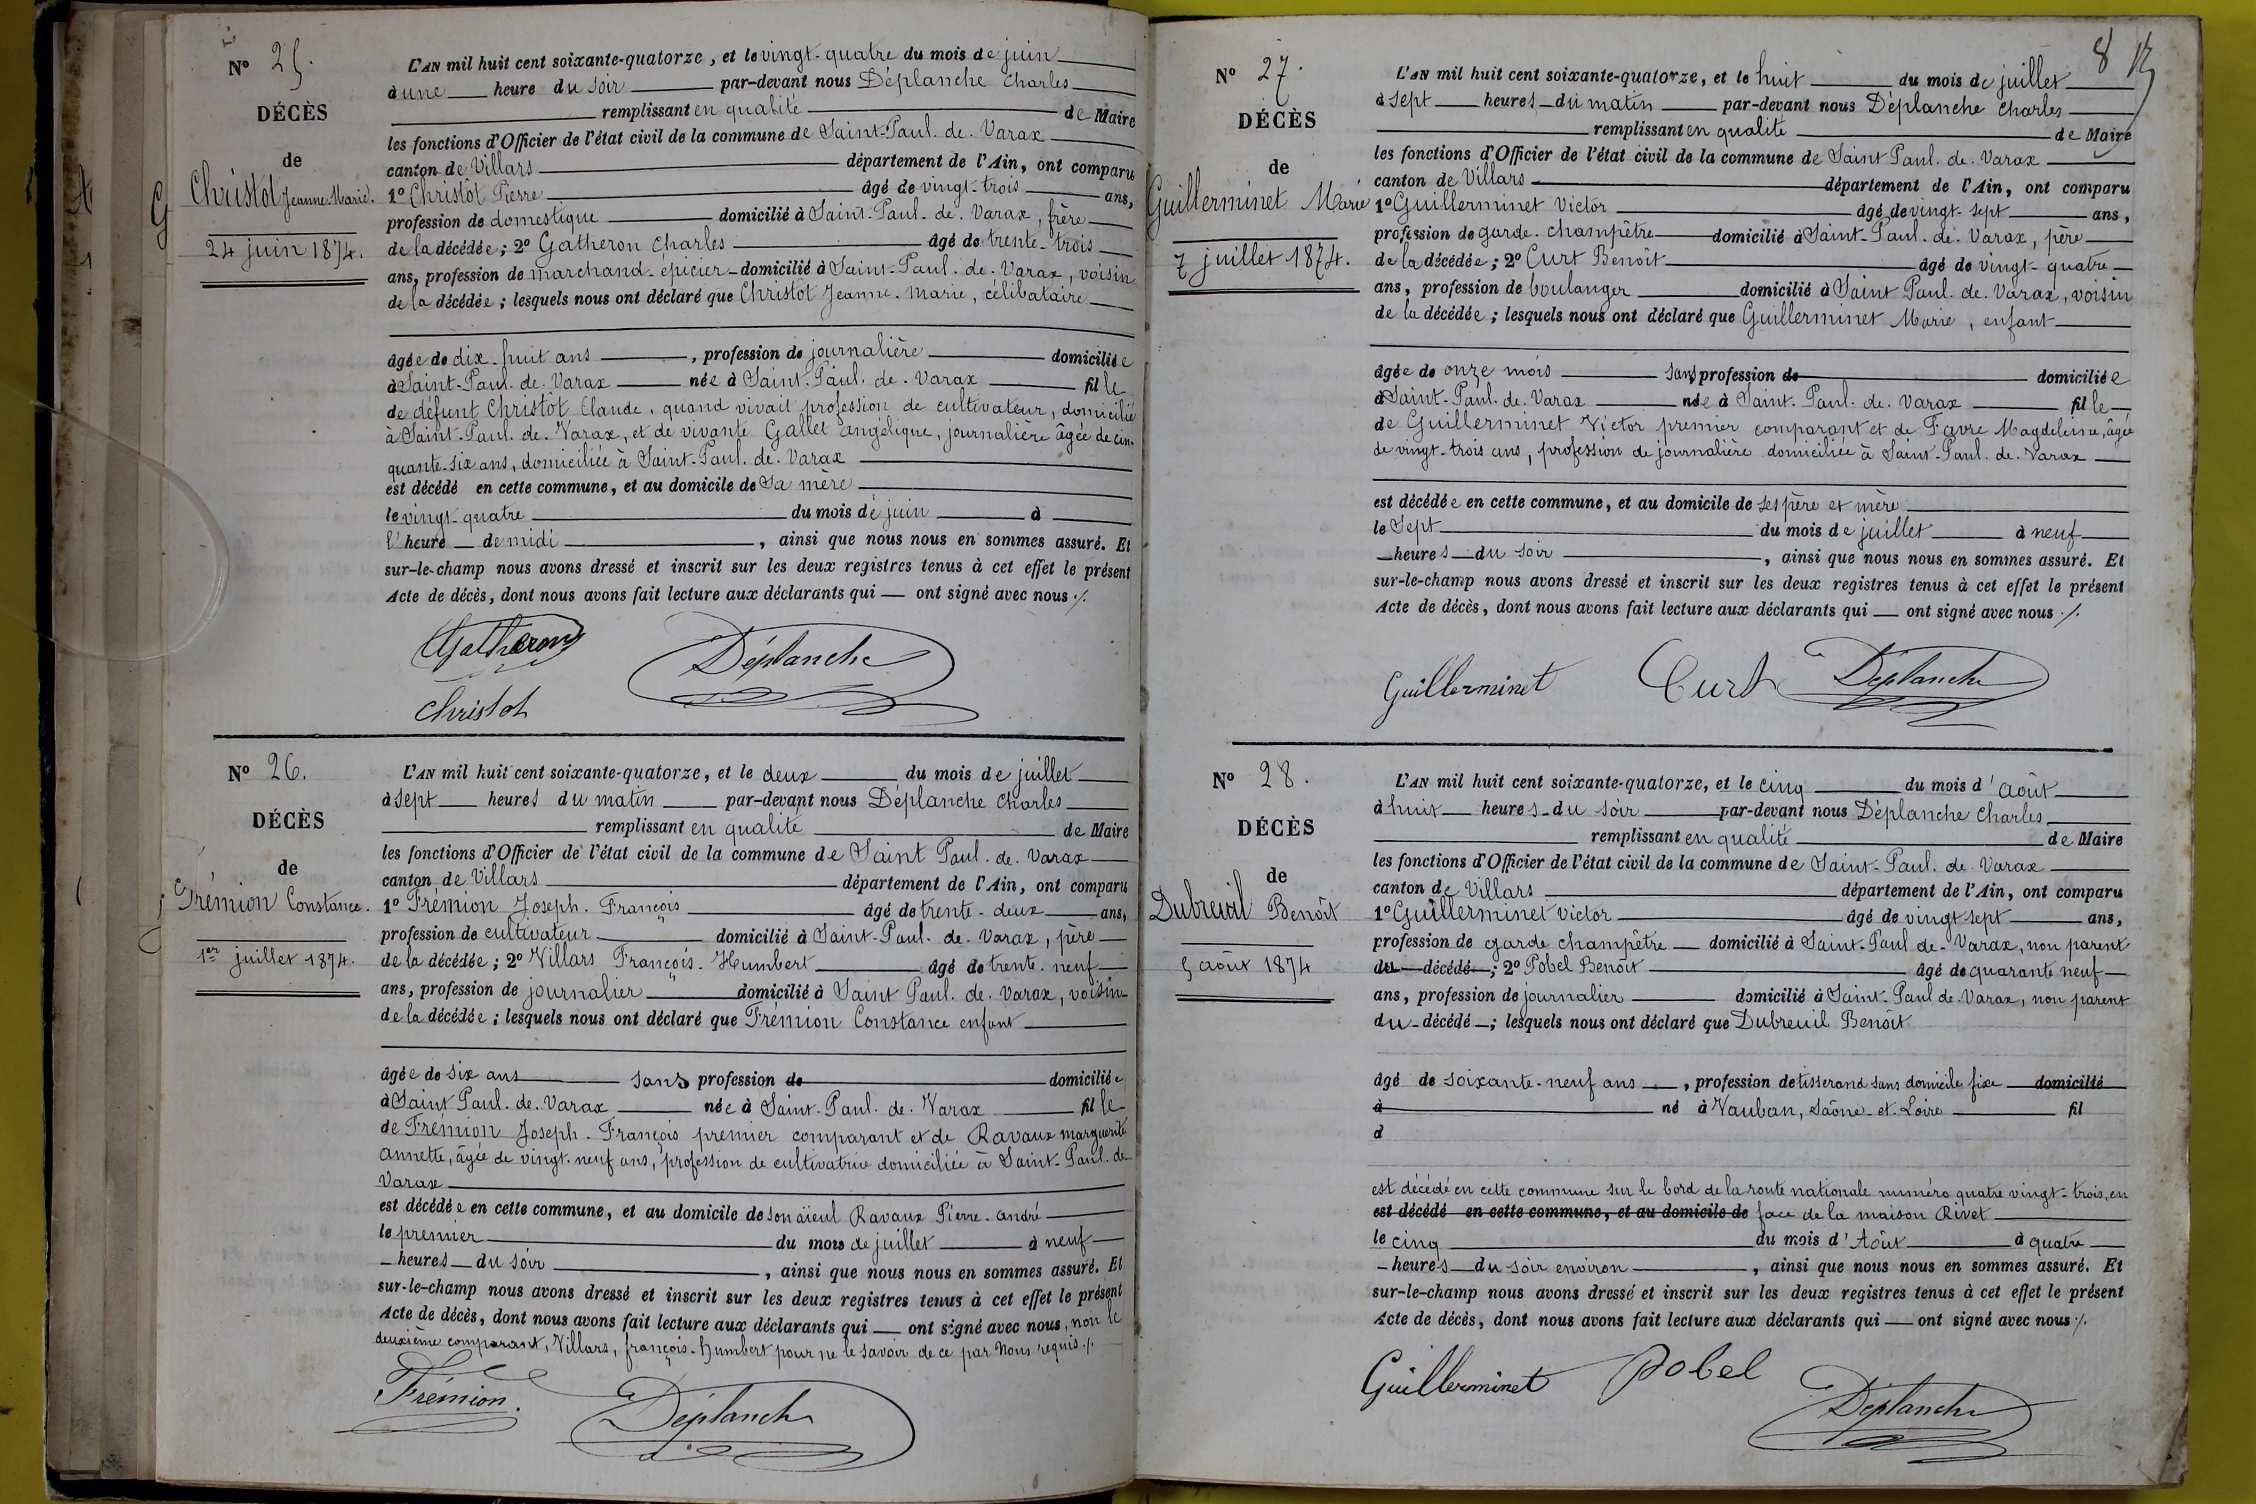 N° 25.
DÉCÈS
de
Christot Jeanne Marie.
24 juin 1874.
L'AN mil huit cent soixante-quatorze, et le vingt-quatre du mois de juin
à une heure du soir par-devant nous Déplanche Charles
remplissant en qualité de Maire
les fonctions d'Officier de l'état civil de la commune de Saint-Paul. de. Varax
canton de Villars département de l'Ain, ont comparu
1° Christot Pierre âgé de vingt-trois ans,
profession de domestique domicilié à Saint-Paul. de. Varax, frère
de la décédée; 2° Gatheron Charles âgé de trente-trois
ans, profession de marchand-épicier domicilié à Saint-Paul. de. Varax, voisin
de la décédée; lesquels nous ont déclaré que Christot Jeanne-Marie, célibataire
âgée de dix-huit ans, profession de journalière domiciliée
à Saint-Paul. de. Varax née à Saint-Paul. de. Varax fille
de défunt Christot Claude, quand vivait profession de cultivateur, domicilié
à Saint-Paul. de. Varax, et de vivante Gallet Angélique, journalière âgée de cin-
quante-six ans, domiciliée à Saint-Paul. de. Varax
est décédé en cette commune, et au domicile de Sa mère
le vingt-quatre du mois de juin à
l'heure de midi, ainsi que nous nous en sommes assuré. Et
sur-le-champ nous avons dressé et inscrit sur les deux registres tenus à cet effet le présent
Acte de décès, dont nous avons fait lecture aux déclarants qui ont signé avec nous ./.
Gatheron Déplanche
Christot
N° 26.
DÉCÈS
de
Frémion Constance.
1er juillet 1874.
L'AN mil huit cent soixante-quatorze, et le deux du mois de juillet
à sept heures du matin par-devant nous Déplanche Charles
remplissant en qualité de Maire
les fonctions d'Officier de l'état civil de la commune de Saint Paul. de. Varax
canton de Villars département de l'Ain, ont comparu
1° Frémion Joseph. François âgé de trente-deux ans,
profession de cultivateur domicilié à Saint-Paul. de. Varax, père
de la décédée; 2° Villars François. Humbert âgé de trente. neuf
ans, profession de journalier domicilié à Saint Paul. de. Varax, voisin
de la décédée; lesquels nous ont déclaré que Frémion Constance enfant
âgée de six ans sans profession de domiciliée
à Saint Paul. de. Varax née à Saint-Paul. de. Varax fille
de Frémion Joseph. François premier comparant et de Ravaux marguerite
annette, âgée de vingt-neuf ans, profession de cultivatrice domiciliée à Saint-Paul. de
Varax
est décédée en cette commune, et au domicile de son aïeul Ravaux Pierre-André
le premier du mois de juillet à neuf
heures du soir, ainsi que nous nous en sommes assuré. Et
sur-le-champ nous avons dressé et inscrit sur les deux registres tenus à cet effet le présent
Acte de décès, dont nous avons fait lecture aux déclarants qui ont signé avec nous, non le
deuxième comparant, Villars, françois-Humbert pour ne le savoir de ce par nous requis ./.
Frémion. Déplanche
8
N° 27.
DÉCÈS
de
Guillerminet Marie
7 juillet 1874.
L'AN mil huit cent soixante-quatorze, et le huit du mois de juillet
à sept heures du matin par-devant nous Déplanche Charles
remplissant en qualité de Maire
les fonctions d'Officier de l'état civil de la commune de Saint Paul. de. Varax
canton de Villars département de l'Ain, ont comparu
1° Guillerminet Victor âgé de vingt-sept ans,
profession de garde-champêtre domicilié à Saint-Paul. de. Varax, père
de la décédée; 2° Curt Benoît âgé de vingt-quatre
ans, profession de boulanger domicilié à Saint Paul. de. Varax, voisin
de la décédée; lesquels nous ont déclaré que Guillerminet Marie, enfant
âgée de onze mois sans profession de domiciliée
à Saint-Paul. de. Varax née à Saint-Paul. de. Varax fille
de Guillerminet Victor premier comparant et de Favre Magdeleine, âgée
de vingt-trois ans, profession de journalière domiciliée à Saint-Paul. de. Varax
est décédée en cette commune, et au domicile de ses père et mère
le Sept du mois de juillet à neuf
heures du soir, ainsi que nous nous en sommes assuré. Et
sur-le-champ nous avons dressé et inscrit sur les deux registres tenus à cet effet le présent
Acte de décès, dont nous avons fait lecture aux déclarants qui ont signé avec nous ./.
Guillerminet Curt Déplanche
N° 28.
DÉCÈS
de
Dubreuil Benoît
5 août 1874
L'AN mil huit cent soixante-quatorze, et le cinq du mois d'août
à huit heures du soir par-devant nous Déplanche Charles
remplissant en qualité de Maire
les fonctions d'Officier de l'état civil de la commune de Saint-Paul. de. Varax
canton de Villars département de l'Ain, ont comparu
1° Guillerminet Victor âgé de vingt sept ans,
profession de garde champêtre domicilié à Saint-Paul de-Varax, non parent
du décédé; 2° Pobel Benoît âgé de quarante neuf
ans, profession de journalier domicilié à Saint-Paul de. Varax, non parent
du décédé; lesquels nous ont déclaré que Dubreuil Benoît
âgé de soixante-neuf ans, profession de tisserand sans domicile fixe domicilié
à né à Vauban, Saône-et-Loire fil
d
est décédé en cette commune sur le bord de la route nationale numéro quatre vingt-trois, en
est décédé en cette commune, et au domicile de face de la maison Rivet
le cinq du mois d'Août à quatre
heures du soir environ, ainsi que nous nous en sommes assuré. Et
sur-le-champ nous avons dressé et inscrit sur les deux registres tenus à cet effet le présent
Acte de décès, dont nous avons fait lecture aux déclarants qui ont signé avec nous ./.
Guillerminet Pobel
Déplanche